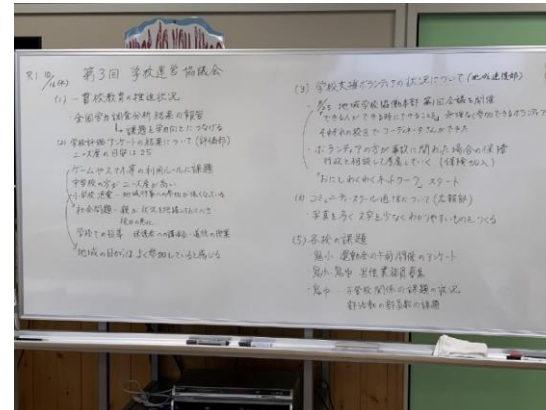 What do you like?
R1 10/16(水) 第3回 学校運営協議会
(1) 一貫校教育の推進状況
・全国学力調査分析結果の報告
課題を学力向上につなげる
(2) 学校評価アンケートの結果について (評価部)
ニーズ度の目安は25
ゲームやスマホ等の利用ルールに課題
中学校の方がニーズ度が高い
社会問題・親が状況を把握しておくべき
学校での指導 保護者への講演会・道徳の授業
地域の目からはよく参加していると感じる
(3) 学校支援ボランティアの状況について (地域連携部)
地域学校協働本部 第1回会議を開催
「できる人ができる時にできることを」無理なく参加できるボランティア
それぞれの校区でコーディネーターさんができた
・ボランティアの方が事故に関わった場合の保償
行政と相談して準備していく (保険加入)
「おにしわくわくネットワーク」 スタート
(4) コミュニティスクール通信について (広報部)
・写真を多く文字を少なくわかりやすいものをつくる
(5) 各校の課題
・鬼小 運動会の午前開催のアンケート
・鬼小・鬼中
・鬼中 … 不登校関係の課題の状況
部活動の部員数の課題